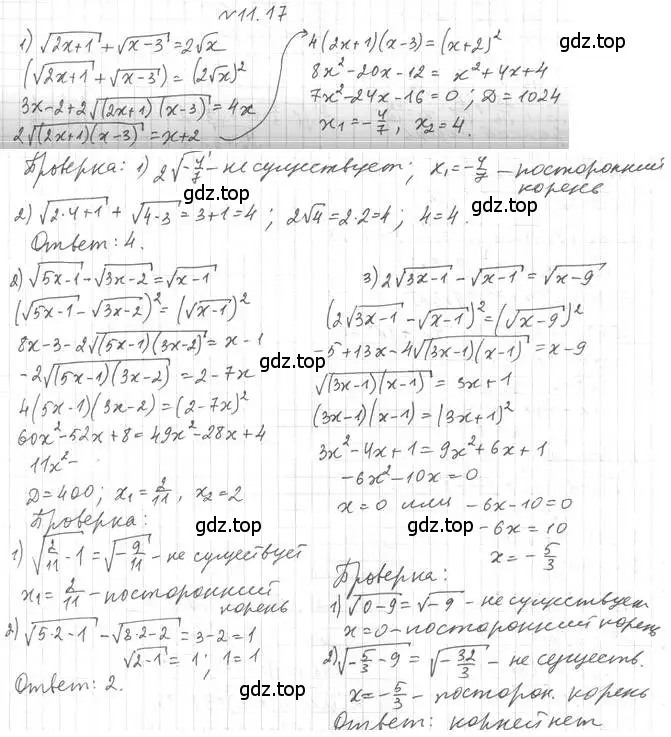 №11.17
1) √(2x+1) + √(x-3) = 2√x
(√(2x+1) + √(x-3)) = (2√x)²
3x-2+2√((2x+1)(x-3)) = 4x
2√((2x+1)(x-3)) = x+2
4(2x+1)(x-3) = (x+2)²
8x²-20x-12 = x²+4x+4
7x²-24x-16=0; D=1024
x₁=-4/7, x₂=4.
Проверка: 1) 2√(-4/7) - не существует; x₁=-4/7 - посторонний корень
gdz.top
gdz.top
2) √(2·4+1) + √(4-3) = 3+1=4; 2√4=2·2=4; 4=4.
Ответ: 4.
2) √(5x-1) - √(3x-2) = √(x-1)
gdz.top
(√(5x-1) - √(3x-2))² = (√(x-1))²
8x-3-2√((5x-1)(3x-2)) = x-1
-2√((5x-1)(3x-2)) = 2-7x
gdz.top
4(5x-1)(3x-2) = (2-7x)²
60x²-52x+8=49x²-28x+4
11x²-
gdz.top
D=400; x₁=2/11, x₂=2
Проверка:
gdz.top
1) √(2/11 - 1) = √(-9/11) - не существует
x₁=2/11 - посторонний корень
gdz.top
2) √(5·2-1) - √(3·2-2) = 3-2=1
√(2-1) = 1; 1=1
Ответ: 2.
gdz.top
3) 2√(3x-1) - √(x-1) = √(x-9)
gdz.top
(2√(3x-1) - √(x-1))² = (√(x-9))²
-5+13x-4√((3x-1)(x-1)) = x-9
√((3x-1)(x-1)) = 3x+1
gdz.top
(3x-1)(x-1) = (3x+1)²
3x²-4x+1=9x²+6x+1
-6x²-10x=0
gdz.top
x=0 или -6x-10=0
-6x=10
gdz.top
x=-5/3
Проверка:
1) √(0-9) = √-9 - не существует
gdz.top
x=0 - посторонний корень
2) √(-5/3 - 9) = √(-32/3) - не существ.
x=-5/3 - посторон. корень
gdz.top
Ответ: корней нет